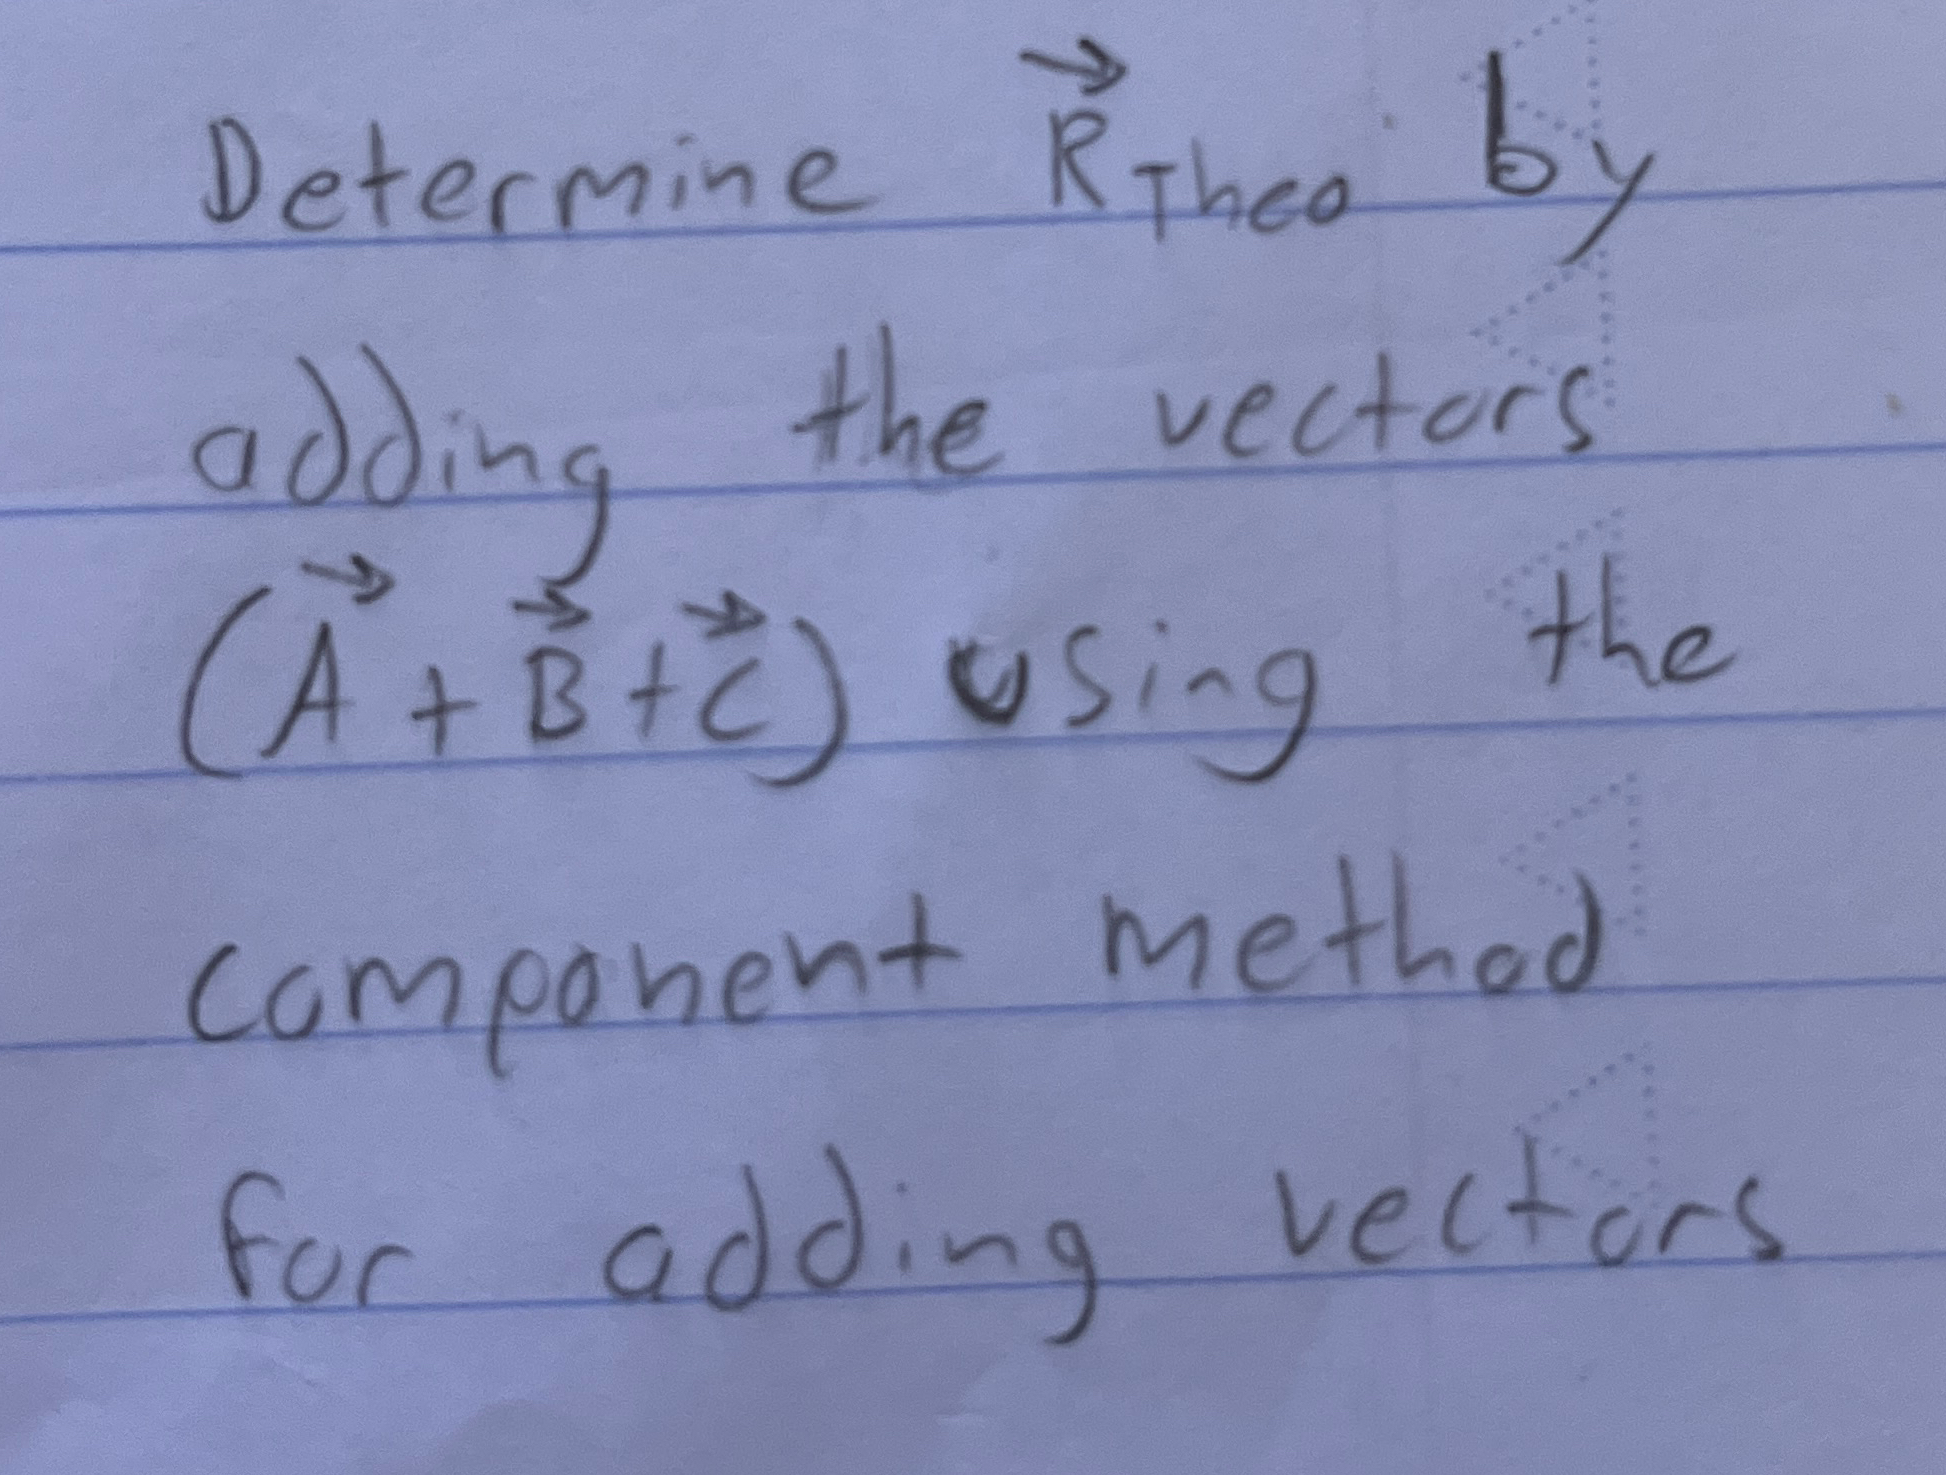 Determine R⃗Theo by
adding the vectors
(A⃗ + B⃗ + C⃗) using the
component method
for adding vectors